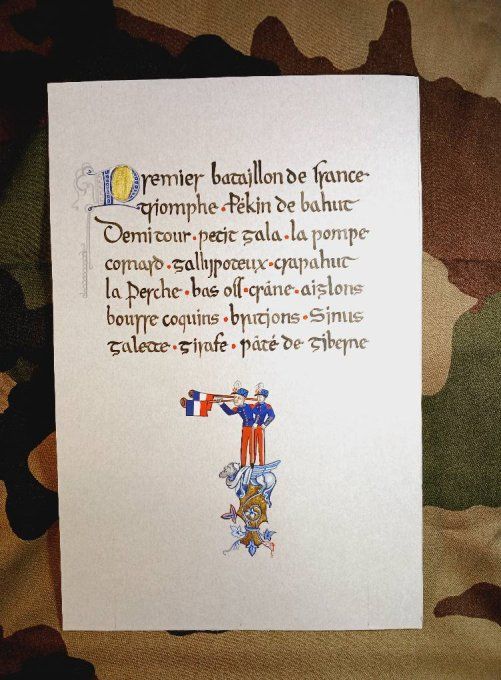 Premier bataillon de France
triomphe • Pékin de bahut
Demi tour • petit gala • la pompe
cornard • gallypoteux • crapahut
la Perche • bas off • crâne • aiglons
bourre coquins • brutions • Sinus
galette • girafe • pâté de giberne